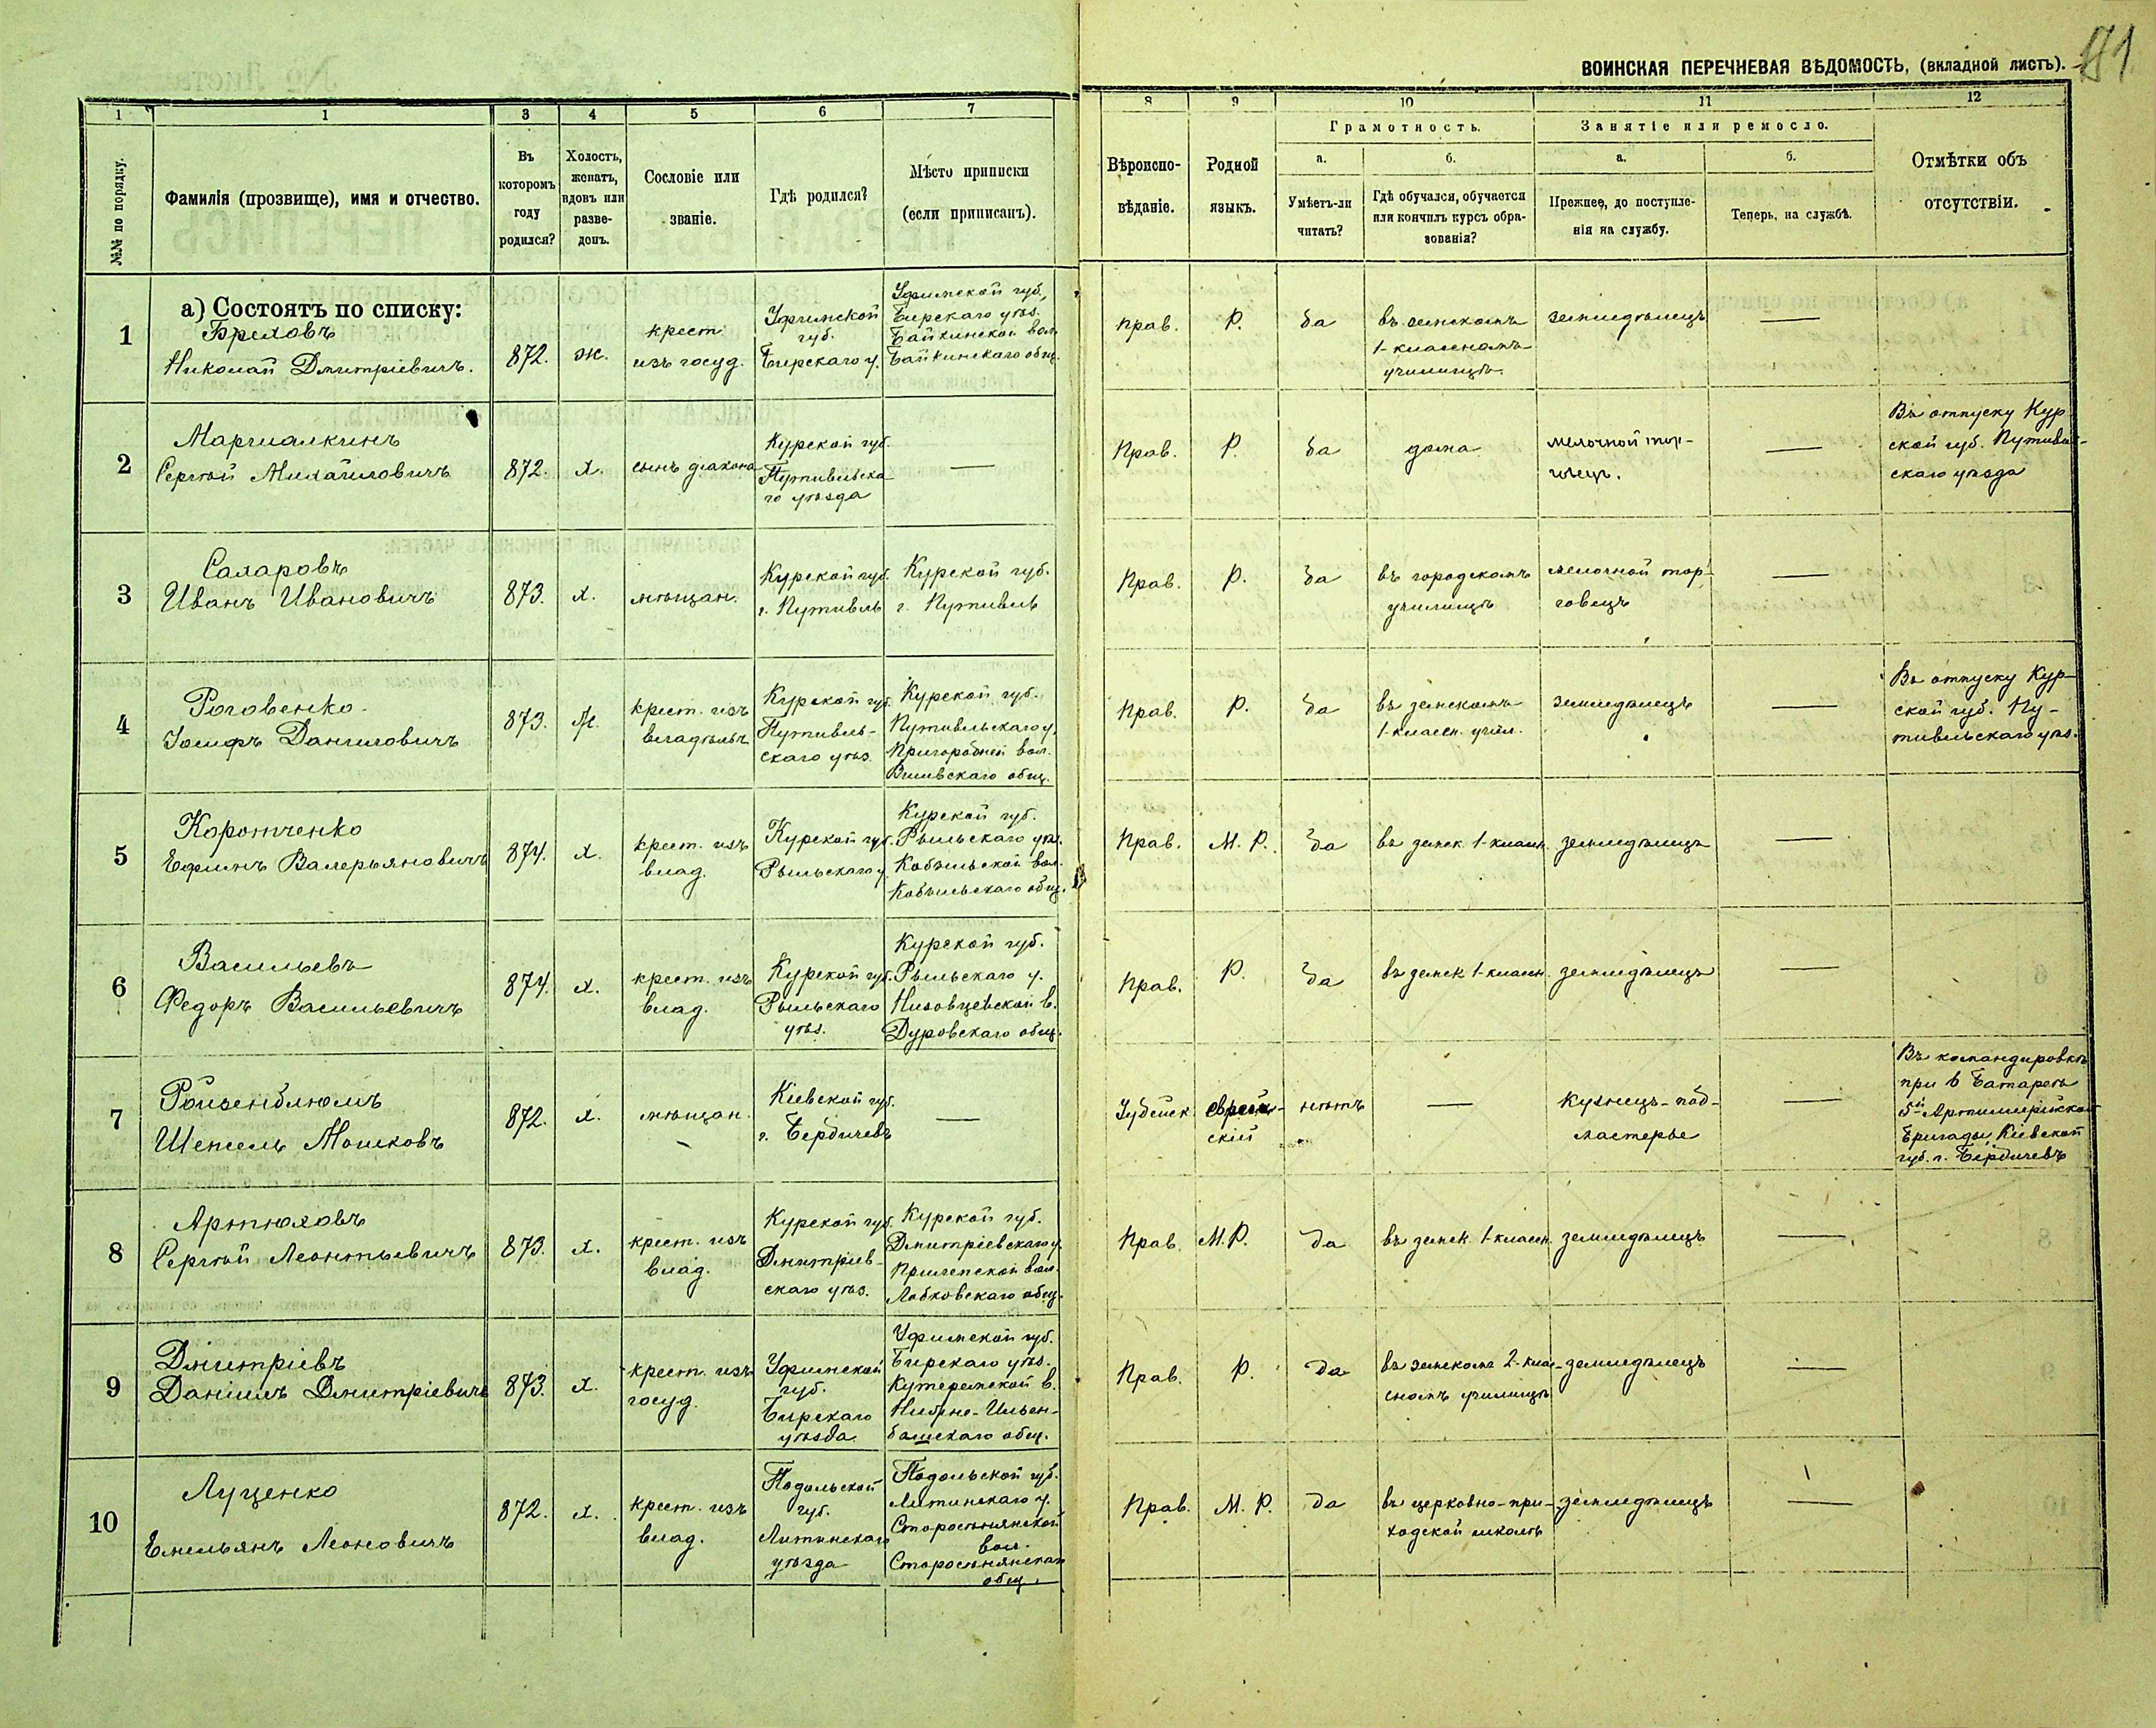 ВОИНСКАЯ ПЕРЕЧНЕВАЯ ВѢДОМОСТЬ, (вкладной листъ).
1 1 3 4 5 6 7 8 9 10 11 12
№№ по порядку.
Фамилія (прозвище), имя и отчество.
Въ
которомъ
году
родился?
Холостъ,
женатъ,
вдовъ или
разве-
денъ.
Сословіе или
званіе.
Гдѣ родился?
Мѣсто приписки
(если приписанъ).
Вѣроиспо-
вѣданіе.
Родной
языкъ.
Грамотность.
а.
Умѣетъ-ли
читать?
б.
Гдѣ обучался, обучается
или кончилъ курсъ обра-
зованія?
Занятіе или ремосло.
а.
Прежнее, до поступле-
нія на службу.
б.
Теперь, на службѣ.
Отмѣтки объ
отсутствіи.
а) Состоятъ по списку:
1
Бреховъ
Николай Дмитріевичъ.
872.
ж.
крест
изъ госуд.
Уфимской
губ.
Бирскаго у.
Уфимской губ.,
Бирскаго уѣз.
Байкинской вол.
Байкинскаго общ.
прав.
Р.
да
въ земскомъ
1-классномъ
училищѣ.
земледѣлецъ
—
2
Сергѣй Михайловичъ
872.
х.
сынъ діакона
Курской губ.
Путивльска
го уѣзда
—
Прав.
Р.
да
дома
мелочной тор-
—
Въ отпуску Кур
ской губ. Путивль-
скаго уѣзда
3
Сахаровъ
Иванъ Ивановичъ
873.
х.
мѣщан.
Курской губ.
г. Путивль
Курской губ.
г. Путивль
Прав.
Р.
да
въ городскомъ
училищѣ
мелочной тор-
говецъ
—
4
Роговенко
Іосифъ Даниловичъ
873.
крест. изъ
владѣльч
Курской губ.
Путивль-
скаго уѣз.
Курской губ.
Путивльскаго у.
Пригородней вол.
общ.
Прав.
Р.
да
въ земскомъ
1-классн. учил.
земледѣлецъ
—
Въ отпуску Кур-
ской губ. Пу-
тивльскаго уѣз.
5
Коротченко
Ефимъ Валерьяновичъ
874.
х.
крест. изъ
влад.
Курской губ.
Рыльскаго у.
Курской губ.
Рыльскаго уѣз.
Кобыльской вол.
Кобыльскаго общ.
Прав.
М. Р.
да
въ земск. 1-классн.
земледѣлецъ
—
6
Васильевъ
Федоръ Васильевичъ
874.
х.
крест. изъ
влад.
Курской губ.
Рыльскаго
уѣз.
Курской губ.
Рыльскаго у.
Низовцевской в.
Дуровскаго общ.
Прав.
Р.
да
въ земск 1-классн.
земледѣлецъ
—
7
Ройзенблюмъ
Мошковъ
872.
х.
мѣщан.
Кіевской губ.
г. Бердичевъ
—
Іудейск
еврей-
скій
нѣтъ
—
кузнецъ-под-
мастерье
—
Въ командировкѣ
при 6 Батареѣ
5й Артиллерійской
Бригады, Кіевской
губ. г. Бердичевъ
8
Артюховъ
Сергѣй Леонтьевичъ
873.
х.
крест. изъ
влад.
Курской губ.
Дмитріев-
скаго уѣз.
Курской губ.
Дмитріевскаго у.
вол.
Лобковскаго общ.
Прав.
М. Р.
да
въ земск. 1-классн.
земледѣлецъ
—
9
Дмитріевъ
Даніилъ Дмитріевичъ
873.
х.
крест. изъ
госуд.
Уфимской
губ.
Бирскаго
уѣзда
Уфимской губ.
Бирскаго уѣз.
Кутеремской в.
Нижне-
башскаго общ.
Прав.
Р.
да
въ земскомъ 2-клас-
сномъ училищѣ
земледѣлецъ
—
10
Луценко
Емельянъ Леоновичъ
872.
х.
крест. изъ
влад.
Подольской
губ.
Литинскаго
уѣзда
Подольской губ.
Литинскаго у.
Старосинявской
вол.
Старосинявскаго
общ.
Прав.
М. Р.
да
въ церковно-при-
ходской школѣ
земледѣлецъ
—